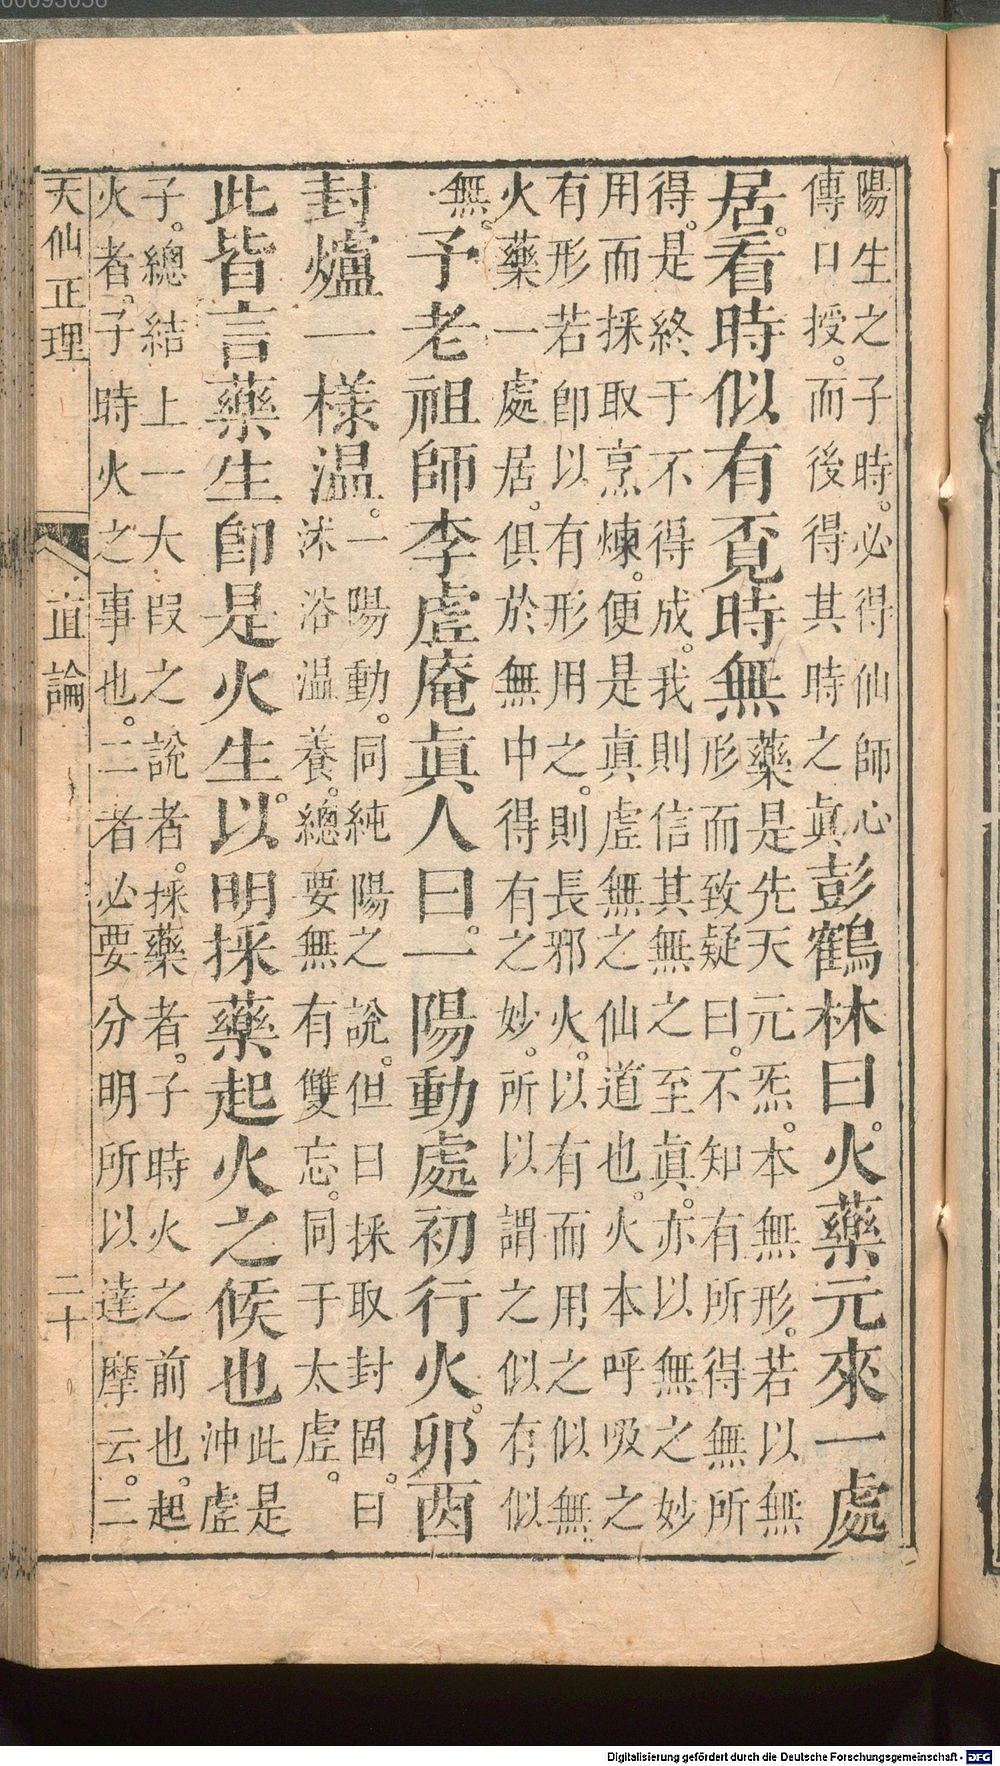 陽生之子時。必得仙師心
傳口授。而後得其時之眞
彭鶴林曰。火藥元來一處
居。看時似有覔時無
藥是先天元炁。本無形。若以無
形而致疑曰。不知有所得無所
得。是終于不得成。我則信其無之至眞。亦以無之妙
用而採取烹煉。便是眞虛無之仙道也。火本呼吸之
有形若卽以有形用之。則長邪火。以有而用之似無。
火藥一處居。俱於無中得有之妙。所以謂之似有似
無。
予老祖師李虛庵眞人曰。一陽動處初行火。卯酉
封爐一樣温。
一陽動。同純陽之說。但曰採取封固。曰
沐浴温養。總要無有雙忘。同于太虛。
此皆言藥生卽是火生。以明採藥起火之候也
此是
沖虛
子。總結上一大段之說者。採藥者。子時火之前也。起
火者。子時火之事也。二者必要分明所以達摩云。二
天仙正理
直論
二十
Digitalisierung gefördert durch die Deutsche Forschungsgemeinschaft - DFG